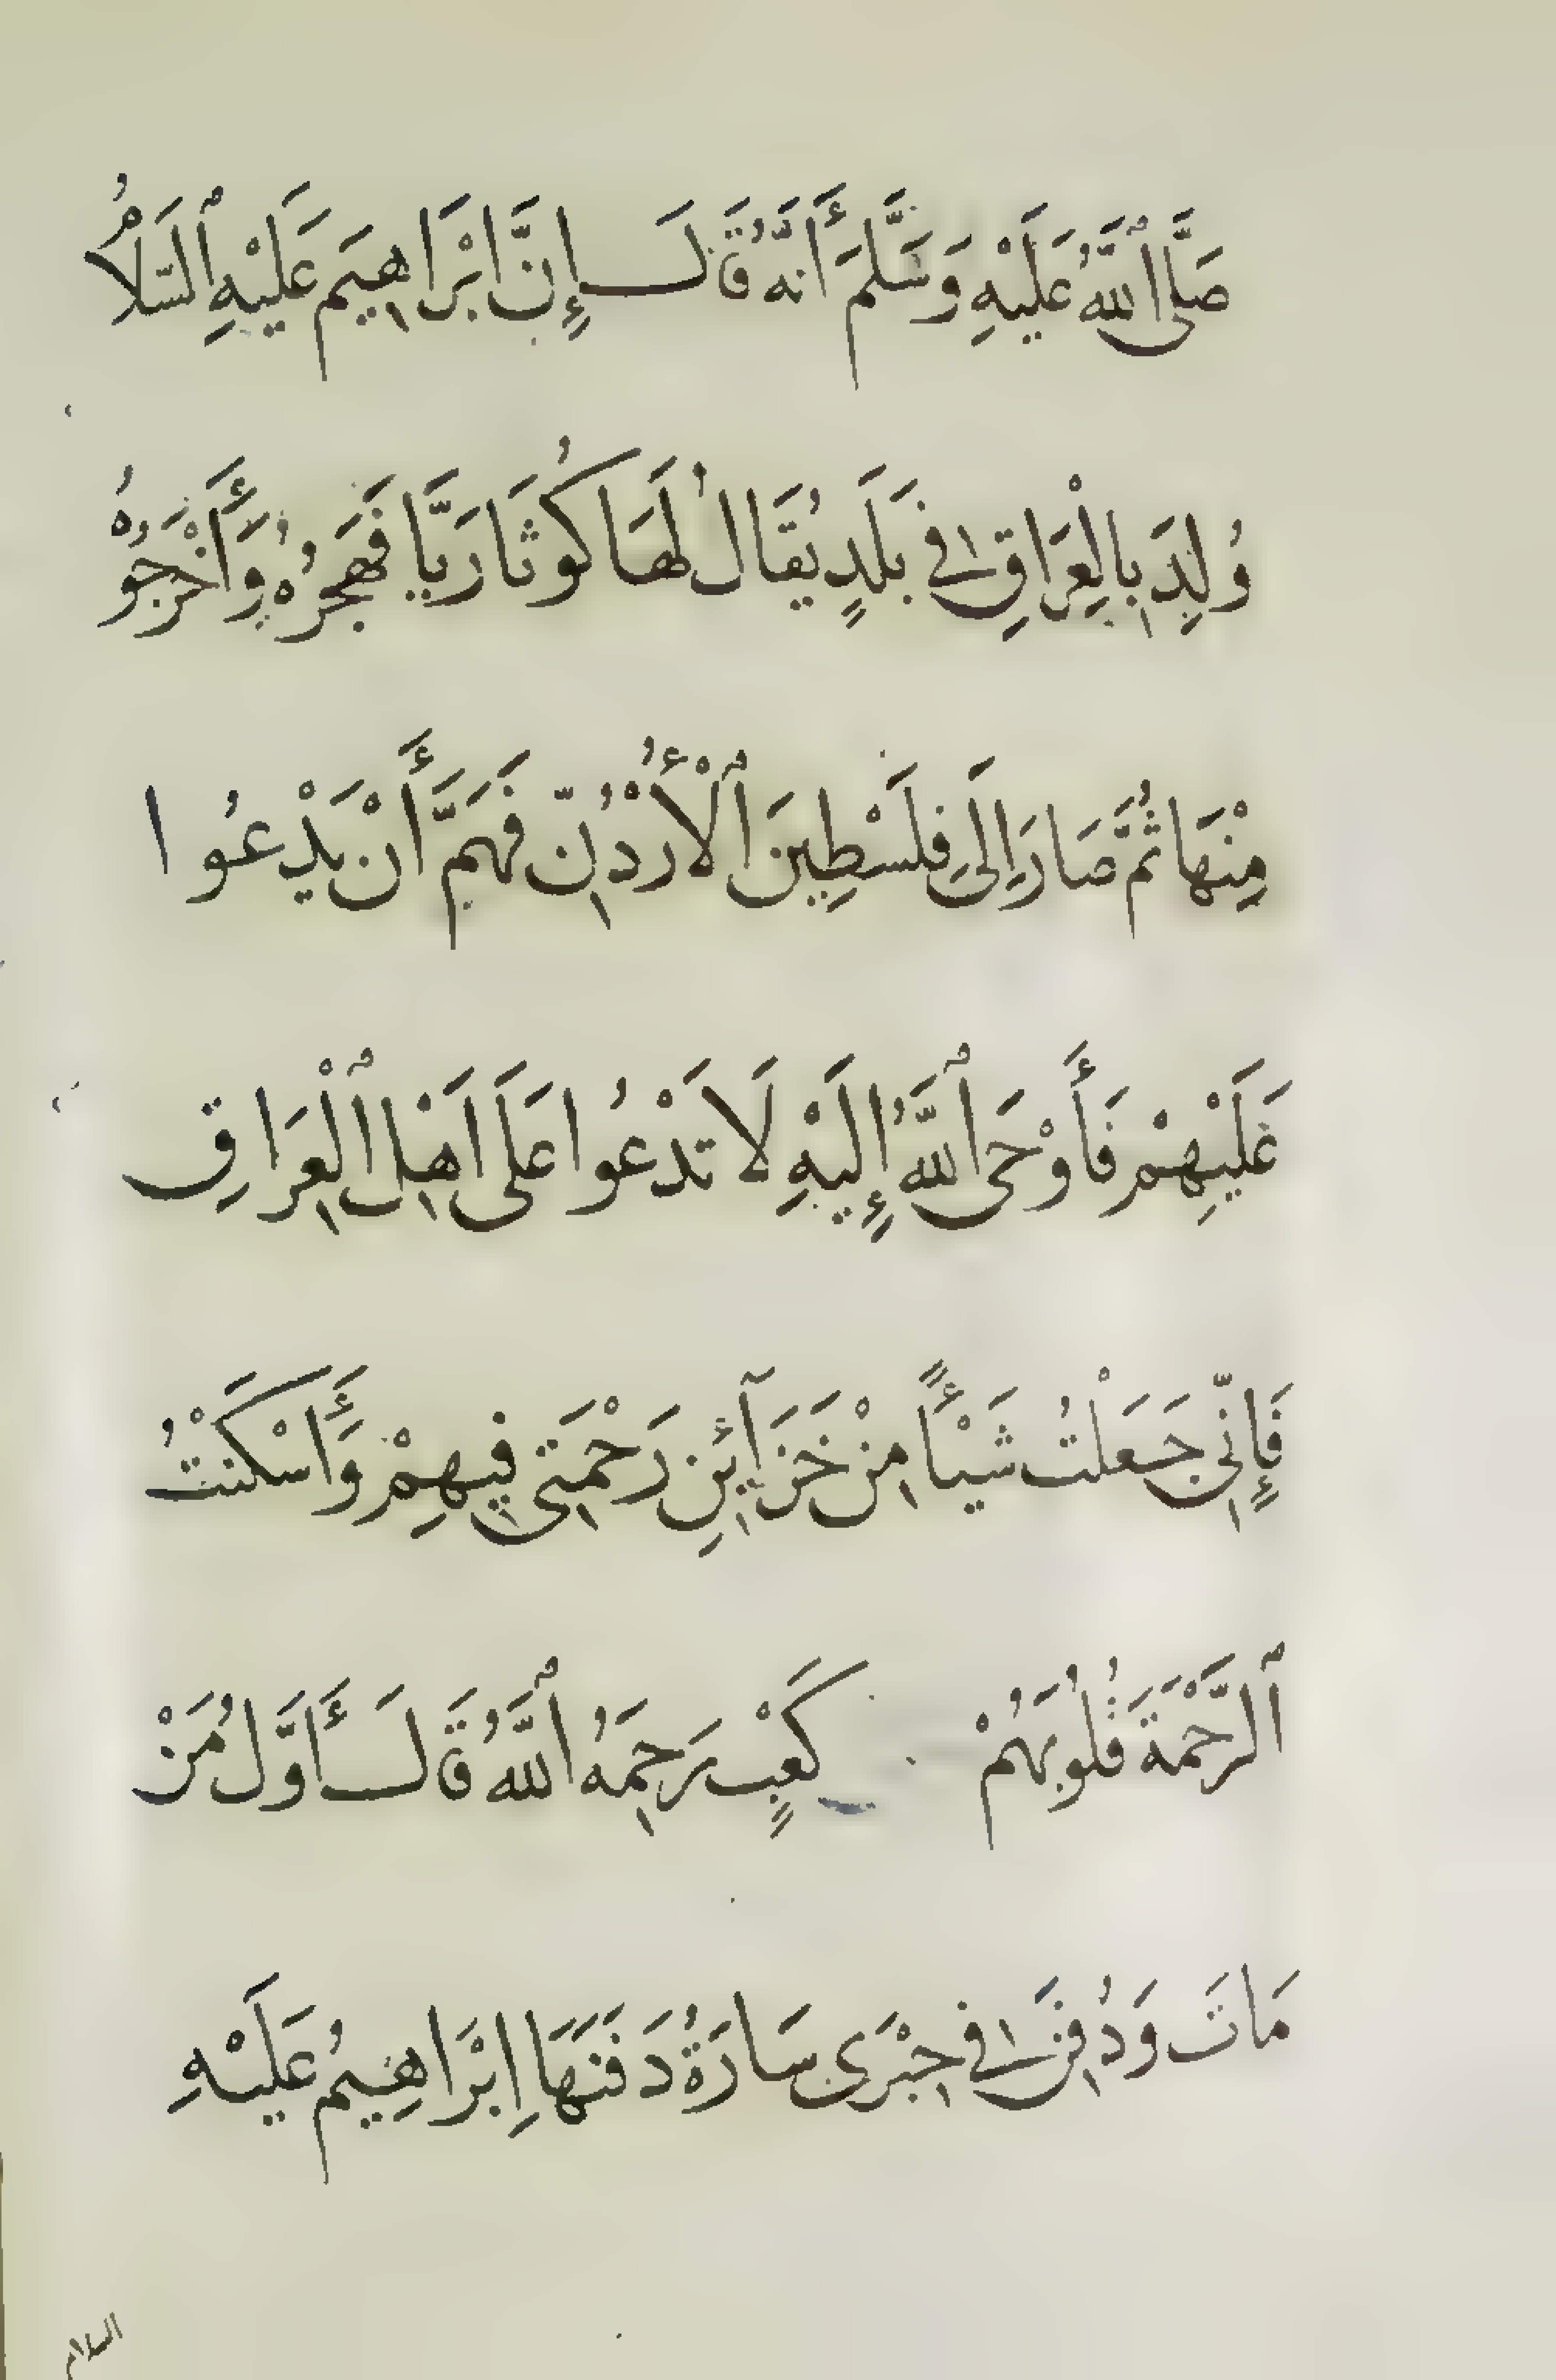 صَلَّى ٱللَّهُ عَلَيْهِ وَسَلَّمَ أَنَّهُ قَالَ إِنَّ ابْرَاهِيَم عَلَيْهِ ٱلسَّلَامُ
وُلِدَ بِالْعِرَاقِ فِي بَلَدٍ يُقَالُ لَهَا كُوثَارَيَّا فَهَجَرُهُ وَأَخْرَجُوهُ
مِنْهَا ثُمَّ صَارَ اِلَى فِلَسْطِينَ ٱلْأُرْدُنِّ فَهَمَّ أَنْ يَدْعُوا
عَلَيْهِمْ فَأَوْحَى ٱللَّهُ إِلَيْهِ لَا تَدْعُوا عَلَى اَهْلِ ٱلْعِرَاقِ
فَإِنِّي جَعَلْتُ شَيْأً مِنْ خَزَآئِنِ رَحْمَتِي فِيهِمْ وَأَسْكَنْتُ
ٱلرَّحْمَةَ قُلُوبَهُمْ كَعْبٍ رَحِمَهُ ٱللَّهُ قَالَ أَوَّلُ مَنْ
مَاتَ وَدُفِنَ فِي حِبْرَى سَارَةُ دَفَنَهَا اِبْرَاهِيمُ عَلَيْهِ
السلام